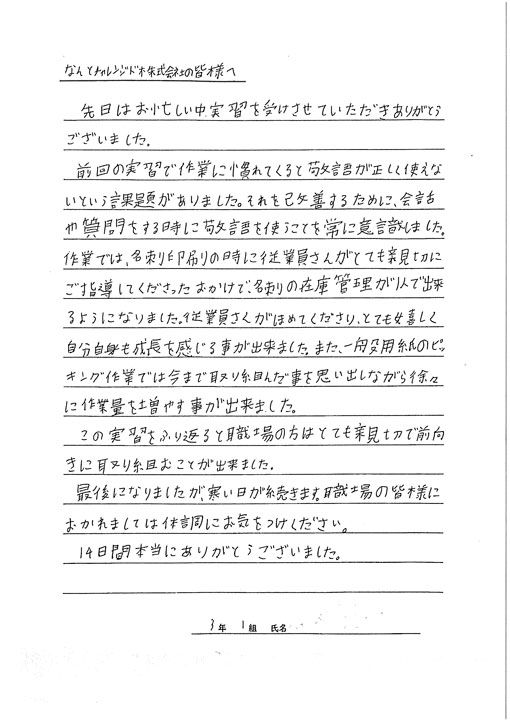 なんとチャレンジド株式会社の皆様へ
先日はお忙しい中実習を受けさせていただきありがとう
ございました。
前回の実習で作業に慣れてくると敬語が正しく使えな
いという課題がありました。それを改善するために、会話
や質問をする時に敬語を使うことを常に意識しました。
作業では、名刺印刷の時に従業員さんがとても親切に
ご指導してくださったおかげで、名刺の在庫管理が1人で出来
るようになりました。従業員さんがほめてくださり、とても嬉しく
自分自身も成長を感じる事が出来ました。また、一般用紙のピッ
キング作業では今まで取り組んだ事を思い出しながら徐々
に作業量を増やす事が出来ました。
この実習をふり返ると職場の方はとても親切で前向
きに取り組むことが出来ました。
最後になりましたが、寒い日が続きます。職場の皆様に
おかれましては体調にお気をつけください。
14日間本当にありがとうございました。
3年 1組 氏名